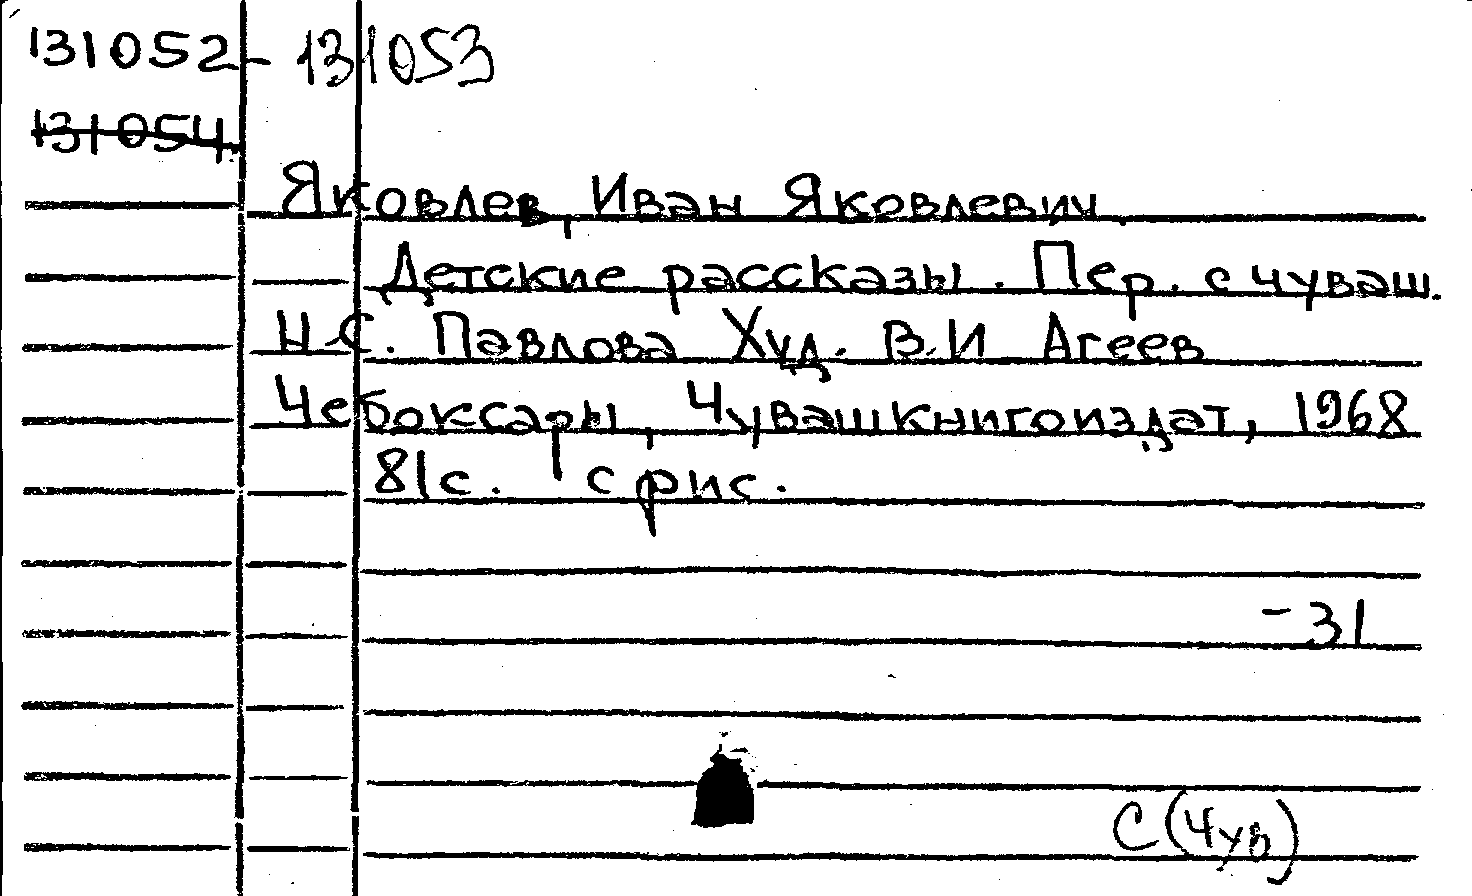 131052 - 131053
131054
Яковлев, Иван Яковлевич.
Детские рассказы. Пер. с чуваш.
Н.С. Павлова Худ. В.И Агеев
Чебоксары, Чувашкнигоиздат, 1968
81с. с рис.
-31
С(Чув)